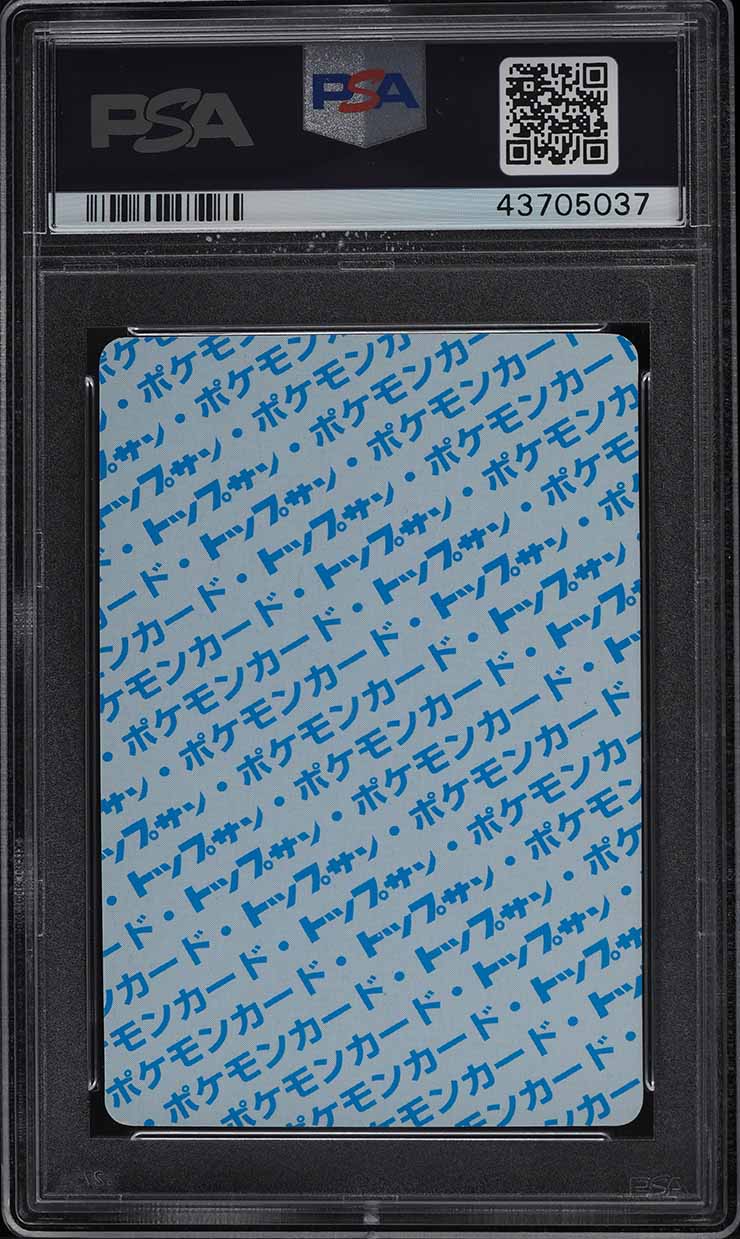 PSA
PSA
43705037
ポケモ
・ポケモン
サン・ポケモン
ップサン・ポケモンカ
・トップサン・ポケモンカード
ード・トップサン・ポケモンカード
ンカード・トップサン・ポケモンカード
ケモンカード・トップサン・ポケモンカ
・ポケモンカード・トップサン・ポケモ
サン・ポケモンカード・トップサン・ポ
ップサン・ポケモンカード・トップサン・
・トップサン・ポケモンカード・トップサ
ード・トップサン・ポケモンカード・ト
ンカード・トップサン・ポケモンカード
モンカード・トップサン・ポケモンカー
ポケモンカード・トップサン・ポケモン
・ポケモンカード・トップサン・ポケ
ポケモンカード・トップサン・
ケモンカード・トッ
モンカード・
ンカー
PSA